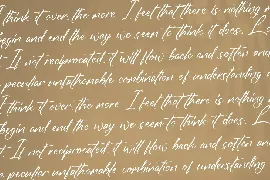 I think it over, the more I feel that there is nothing
begin and end the way we seem to think it does. L
t If not reciprocated, it will flow back and soften an
a peculiar unfathomable combination of understanding
I think it over, the more I feel that there is nothing
begin and end the way we seem to think it does. L
t If not reciprocated, it will flow back and soften an
a peculiar unfathomable combination of understanding